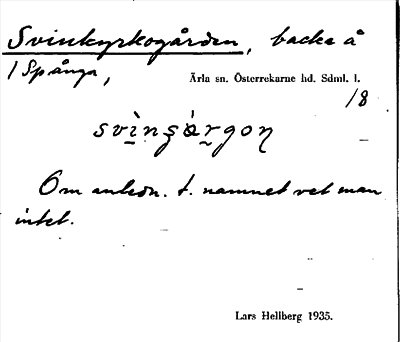 Svinkyrkogården, backe å
/ Spånga,
Ärla sn. Österrekarne hd. Sdml. l.
1/8
Om anledn. t. namnet vet man
intet.
Lars Hellberg 1935.